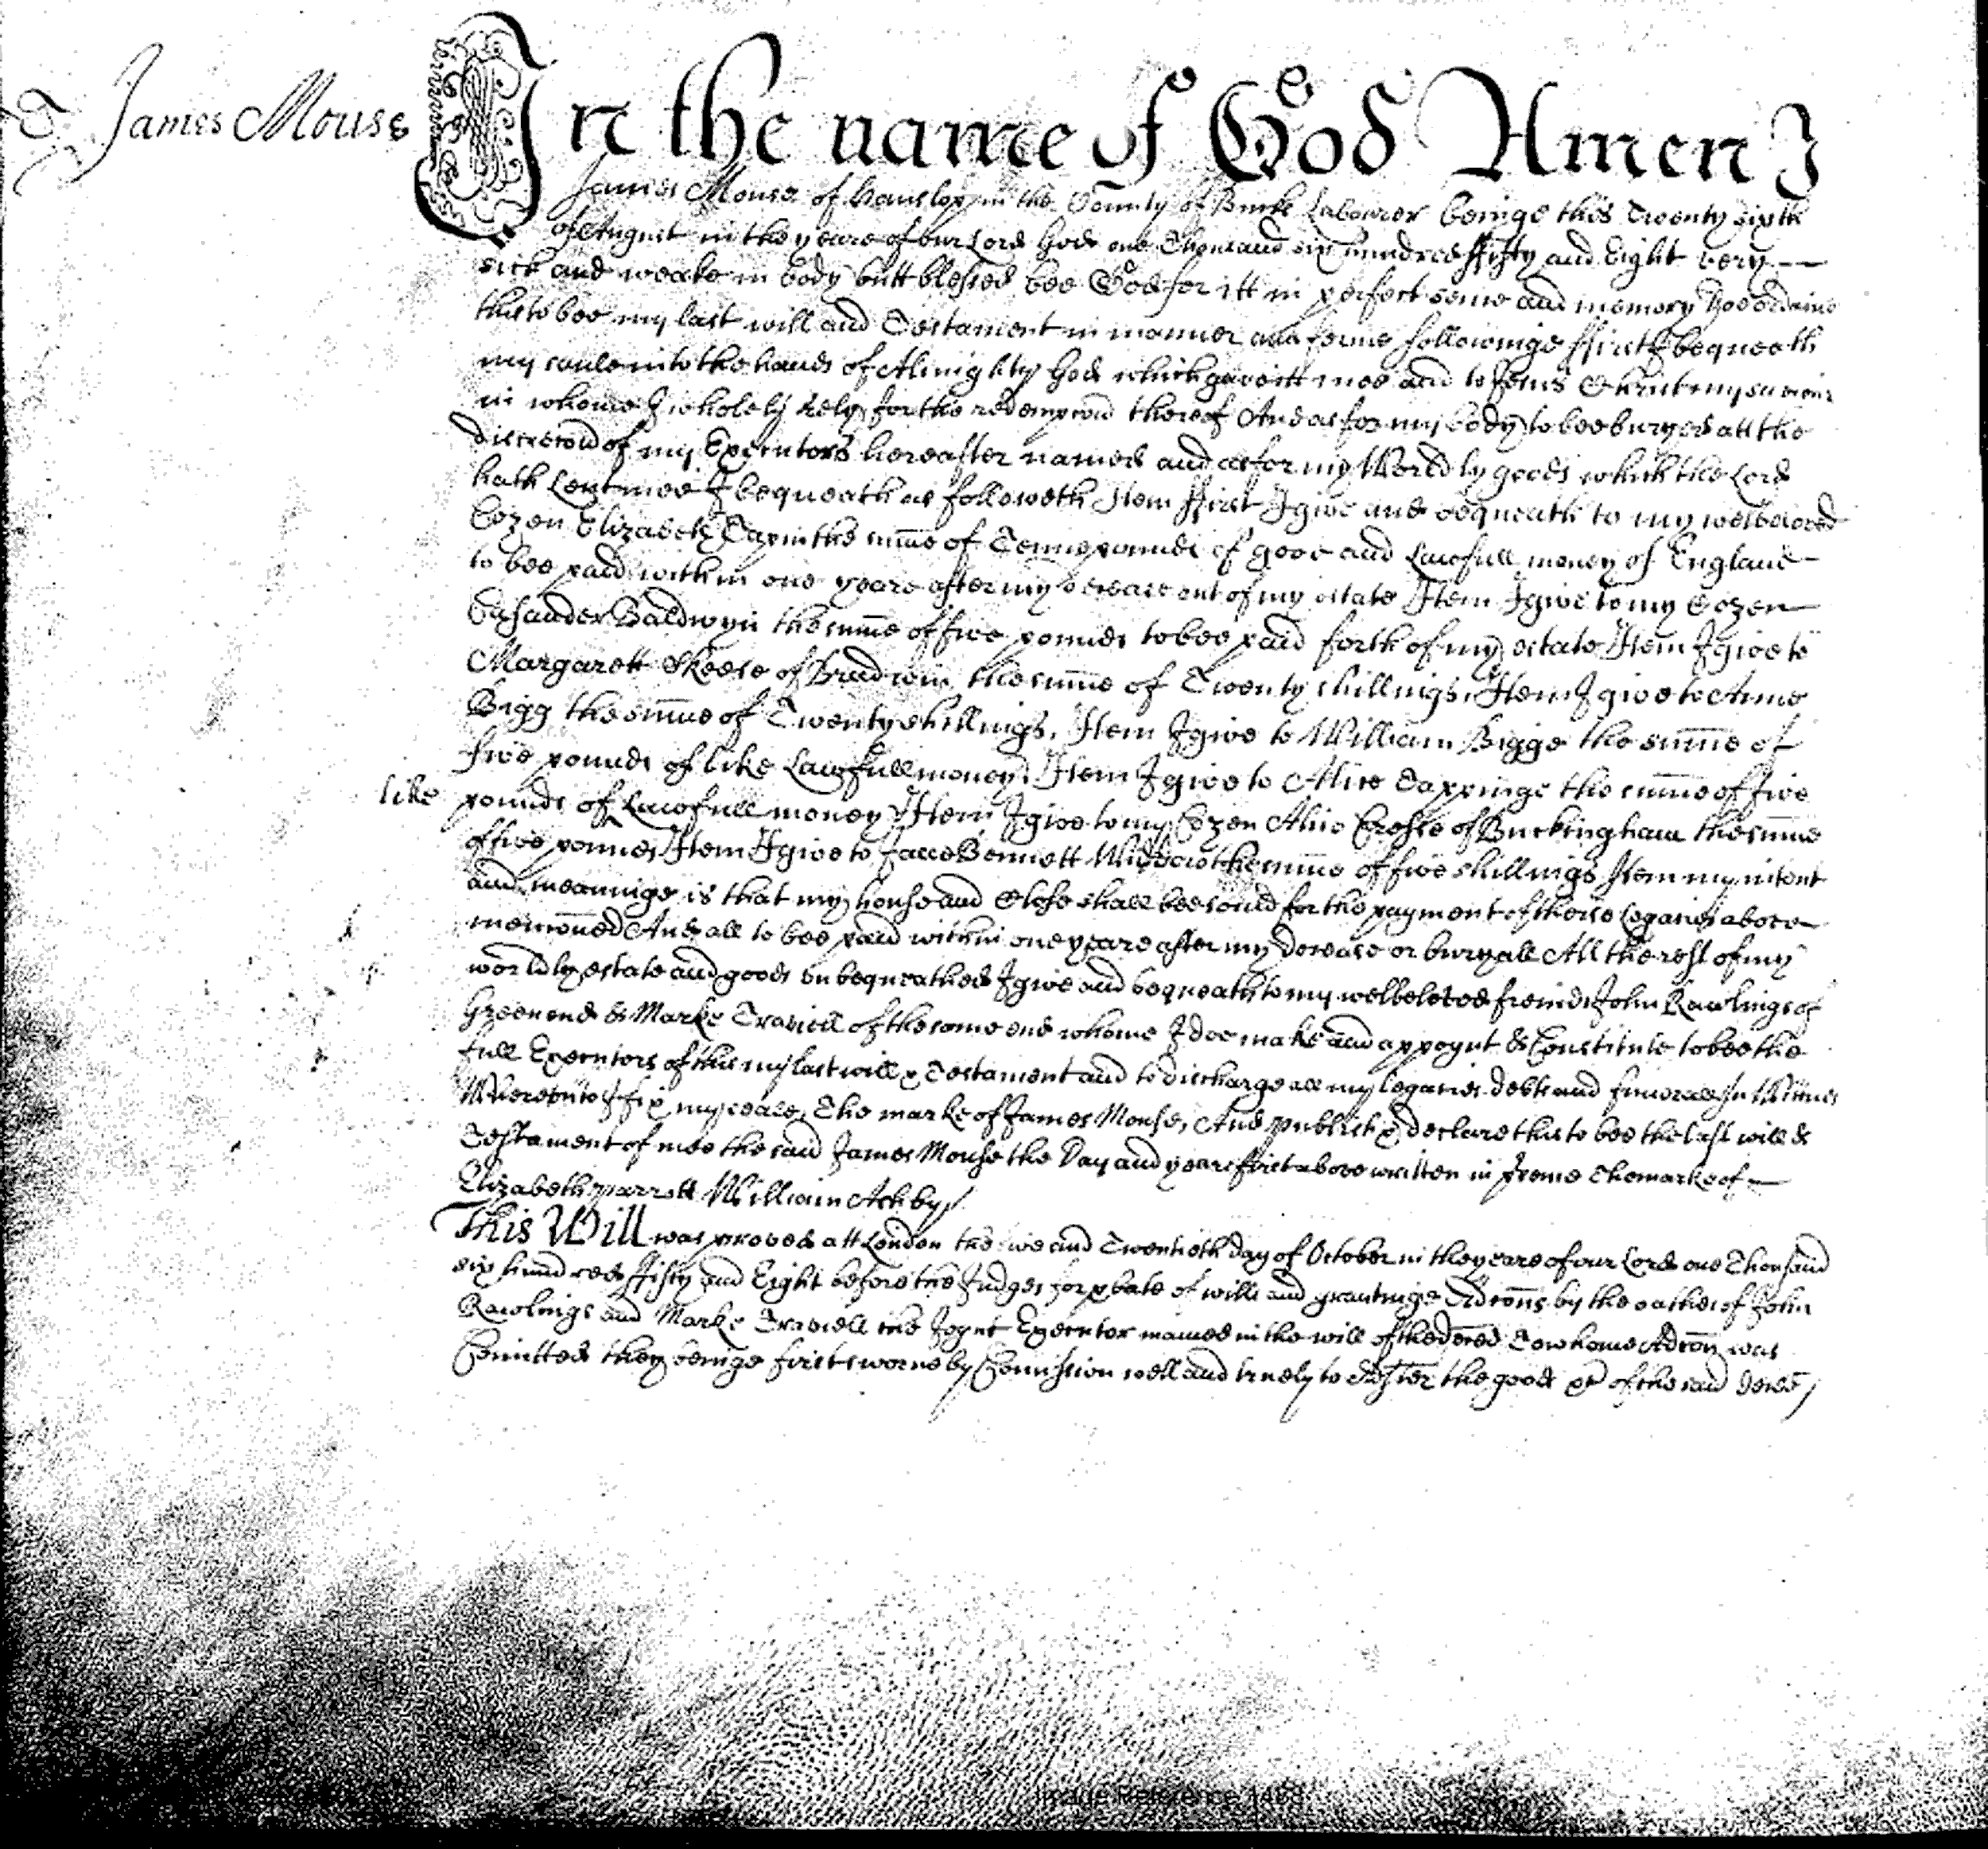 T. James Mouse
In the name of God Amen I
James Mouse of Hanslop in the County of Bucks Labourer beinge this Twenty sixth
of August in the yeare of our Lord God one Thousand six hundred ffifty and Eight very
sick and weake in body butt blessed bee God for itt in perfect sence and memory doe ordaine
this to bee my last will and Testament in manner and forme followinge ffirst I bequeath
my soule into the hands of Almighty God which gave itt mee and to Jesus Christ my saviour
in whome I wholely rely for the redempcon thereof And as for my body to bee buryed att the
discrecon of my Executors hereafter named and as for my Worldly goods which the Lord
hath Lent mee I bequeath as followeth Item ffirst I give and bequeath to my welbeloved
Cozen Elizabeth the sume of Tenne pounds of good and Lawfull money of England
to bee paid within one yeare after my decease out of my estate Item I give to my Cozen
Baldwyn the sume of five pounds to bee paid forth of my estate Item I give to
Margarett Skeese of the sume of Twenty shillings, Item I give to Anne
Bigg the sume of Twenty shillings, Item I give to William Bigge the sume of
five pounds of like Lawfull money, Item I give to Alice Tappinge the sume of five
like pounds of Lawfull money Item I give to my Cozen Alice Crosse of Buckingham the sume
of five pounds Item I give to Bennett Widdow the sume of five shillings Item my intent
and meaninge is that my house and Close shall bee sould for the payment of theise Legacies above
menconed And all to bee paid within one yeare after my decease or buryall All the rest of my
worldly estate and goods unbequeathed I give and bequeath to my welbeloved freinds John Rawlings of
Greenend & Marke Travell of the same end whome I doe make and appoynt & Constitute to bee the
full Executors of this my last will & Testament and to discharge all my legacies debts and funerall In Wittnes
Whereunto I fix my seale, The marke of James Mouse, And publish & declare this to bee the last will &
Testament of mee the said James Mouse the Day and yeare first above written in The marke of
Elizabeth parrott William Ashby
This Will was proved att London the five and Twentieth day of October in the yeare of our Lord one Thousand
six hundred ffifty and Eight before the Judges for pbate of wills and grantinge Adcons by the oathes of John
Rawlings and Marke Travell the Joynt Executor named in the will of the deced To whome Adcon was
Comitted they beinge first sworne by Comission well and truely to the goods of the said deced
Image Reference 1488